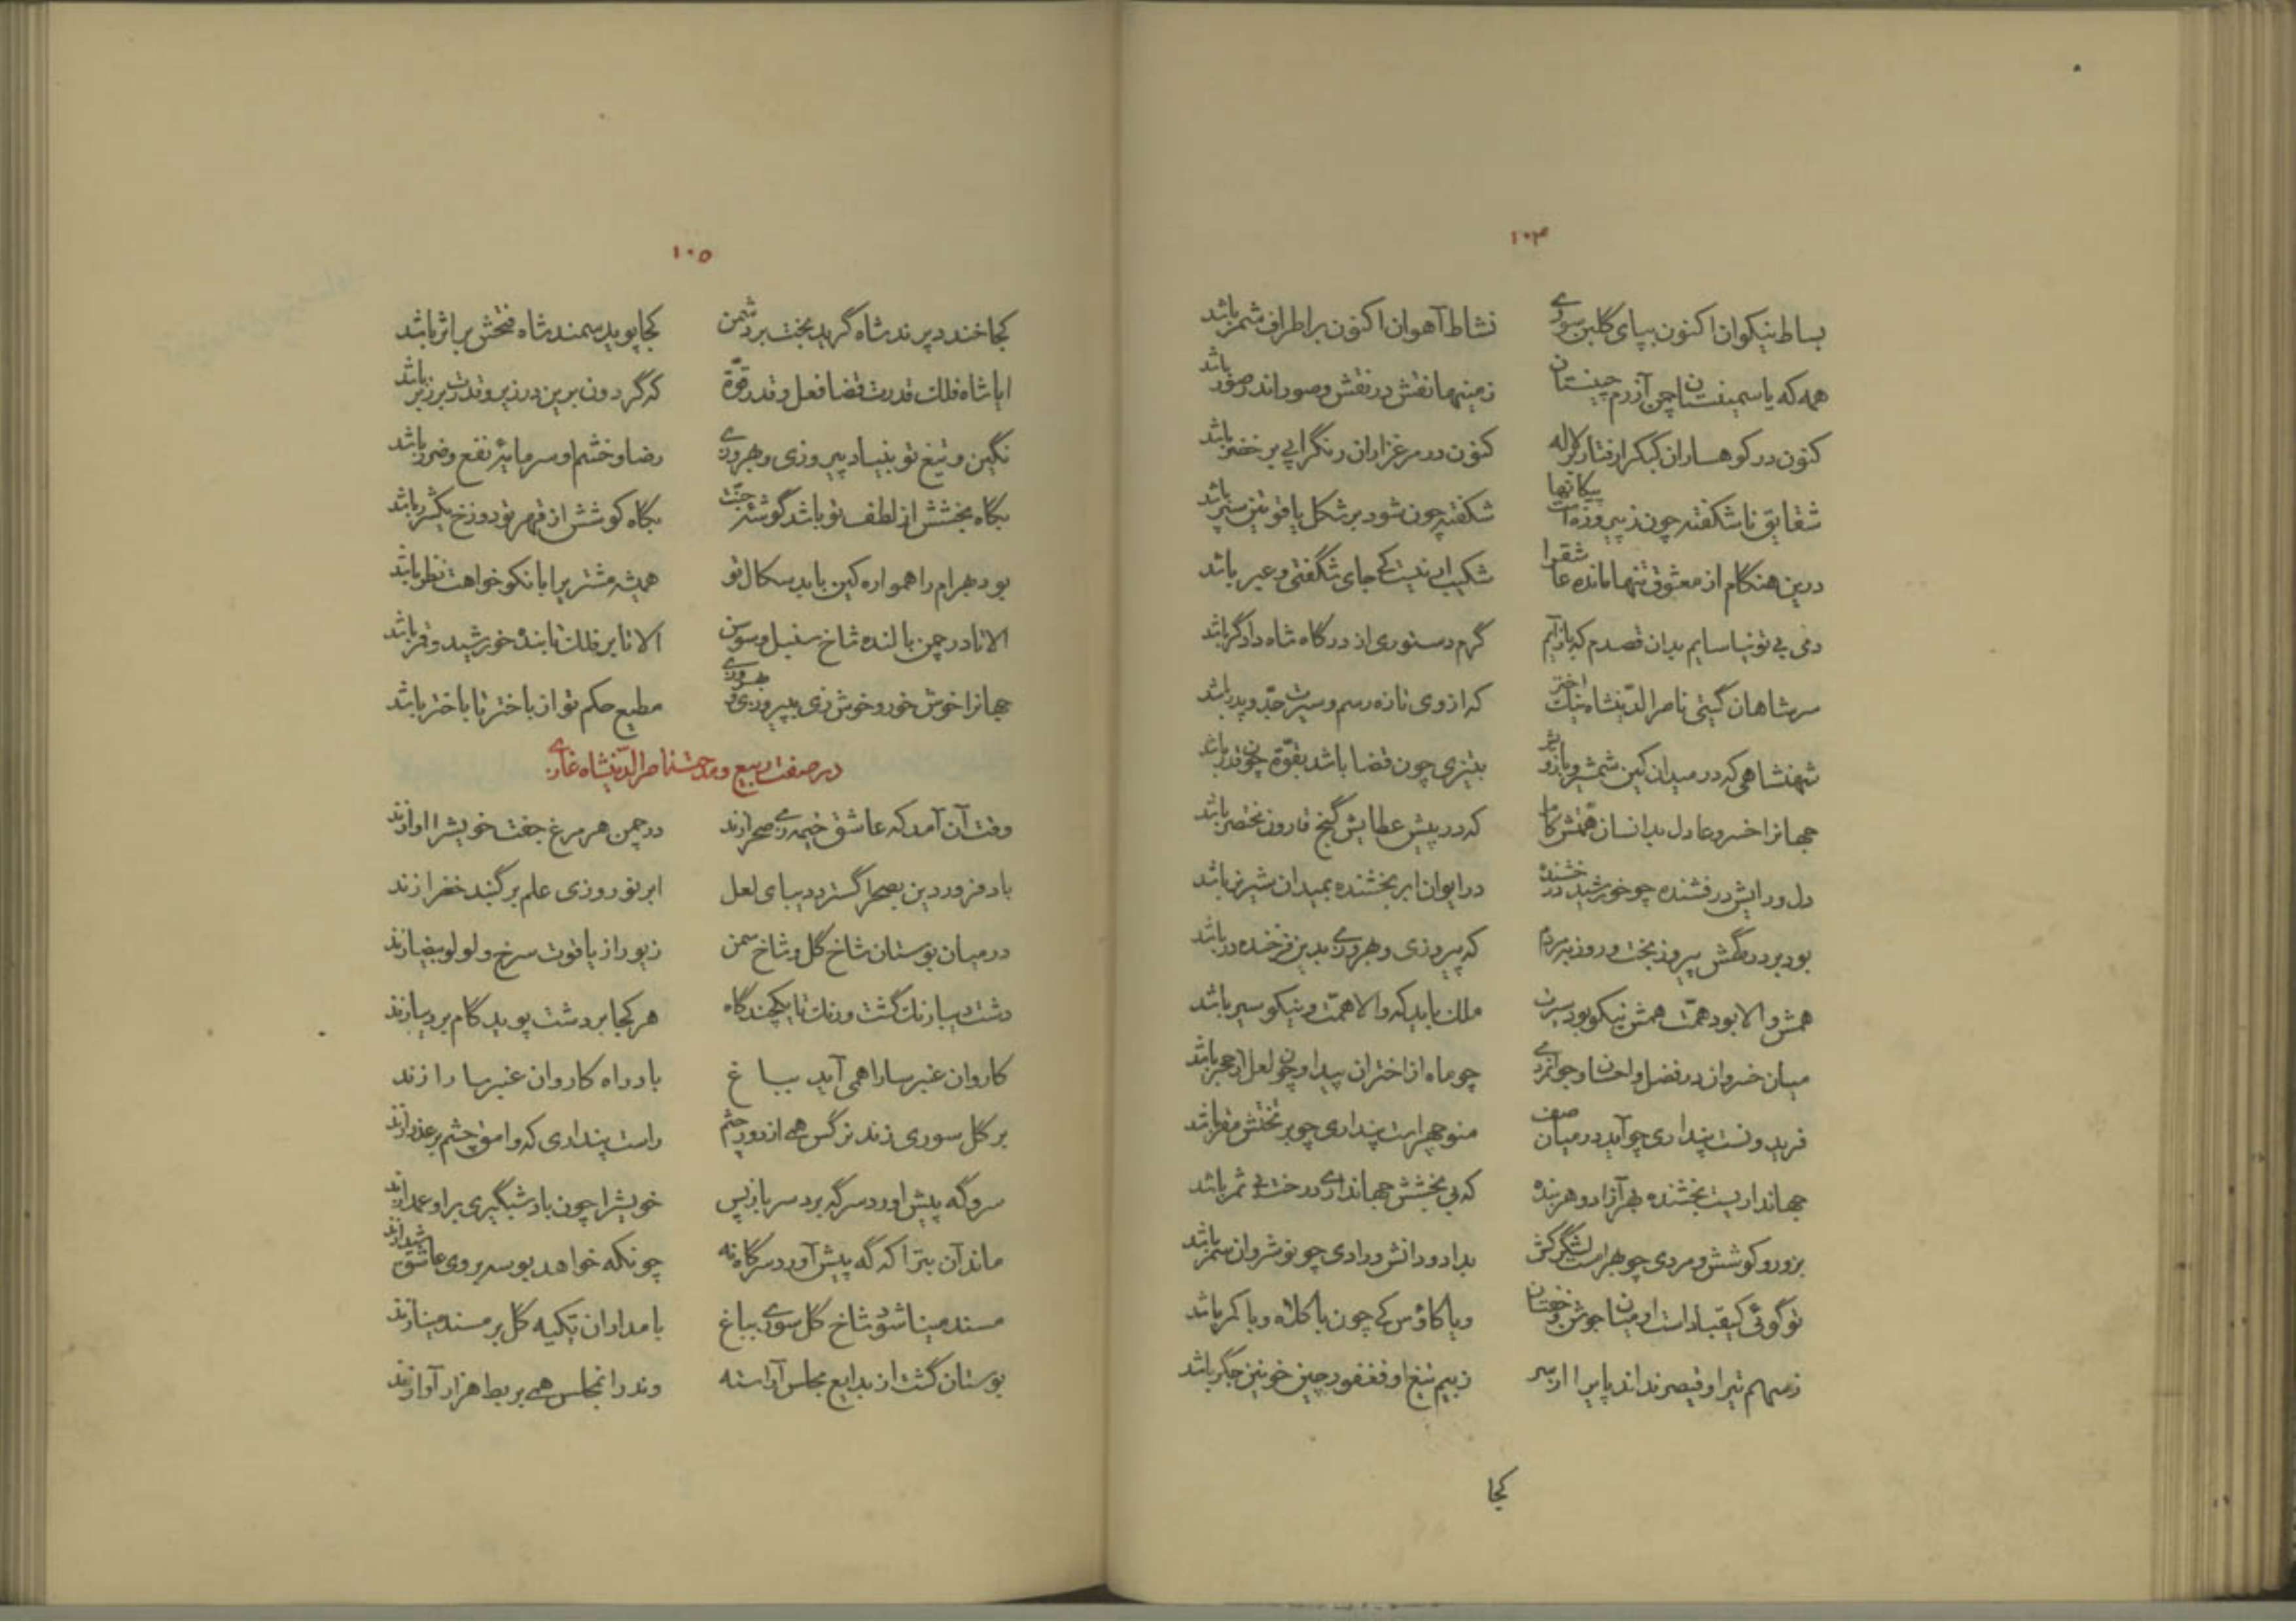 ۱۰۴
بساط نیکوان اکنون بپای گلبن سوری نشاط آهوان اکنون بر اطراف شمر باشد
همه که یاسمینستان چمن آزرم چینستان زمینها نقش در نقش و صور اندر صور باشد
کنون در کوهساران کبک را رفتار بر لاله کنون در مرغزاران رنگ را پی بر خضر باشد
شقایق ناشکفته چون ز پیروزه است پیکانها شکفته چون شود بر شکل یاقوتین سپر باشد
درین هنگام از معشوق تنها مانده عاشق را شکیب ار نیست کی جای شگفتی و عبر باشد
دمی بی تو نیاسایم بدان قصدم که باز آیم گرم دستوری از درگاه شاه دادگر باشد
سر شاهان گیتی ناصرالدینشاه نیک اختر که از وی تازه رسم و سیرت جد و پدر باشد
شهنشاهی که در میدان کین شمشیر و بازو بتیزی چون قضا باشد بقوة چون قدر باشد
جهانرا خسرو عادل بدانسان همتش کامل که در پیش عطایش گنج قارون مختصر باشد
دل و رایش درفشنده چو خورشید درخشنده در ایوان ابر بخشنده بمیدان شیر نر باشد
بود بر درگهش پیروز بخت و روز به مردم که پیروزی و بهروزی بدین فرخنده در باشد
همش والا بود همت همش نیکو بود سیرت ملک باید که والا همت و نیکو سیر باشد
میان خسروان در فضل و احسان و جوانمردی چو ماه از اختران پیدا و چون لعل از حجر باشد
فریدونست پنداری چو آید در میان صف منوچهر است پنداری چو بر تختش مقر باشد
جهانداریست بخشنده بهر آزاد و هر بنده که بی بخشش جهانداری درخت بی ثمر باشد
بزور و کوشش و مردی چو بهرام است لشگرکش بداد و دانش و رادی چو نوشروان سمر باشد
تو گوئی کیقباد است او میان جوشن و خفتان و یا کاؤس کی چون با کلاه و با کمر باشد
ز سهم تیر او قیصر نداند پای را از سر ز بیم تیغ او فغفور چین خونین جگر باشد
کجا
۱۰۵
کجا خندد پرند شاه گرید بخت بر دشمن کجا پوید سمند شاه فتحش بر اثر باشد
ایا شاه فلک قدرت قضا فعل و قدر قوة که گردون برین در زیر و قدرت بر زبر باشد
نگین و تیغ تو بنیاد پیروزی و بهروزی رضا و خشم او سرمایۀ نفع و ضرر باشد
بگاه بخشش از لطف تو باشد گوشۀ جنت بگاه کوشش از قهر تو دوزخ یکشرر باشد
بود بهرام را همواره کین با بد سکال تو همیشه مشتریرا با نکو خواهت نظر باشد
الا تا در چمن بالنده شاخ سنبل و سوسن الا تا بر فلک تابنده خورشید و قمر باشد
جهانرا خوش خور و خوش زی بپیروزی و بهروزی مطیع حکم تو از باختر تا باختر باشد
در صفت ربیع و مدحت ناصرالدینشاه غازی
وقت آن آمد که عاشق خیمه زی صحرا زند در چمن هر مرغ جفت خویشرا اوا زند
باد فروردین بصحرا گسترد دیبای لعل ابر نوروزی علم بر گنبد خضرا زند
در میان بوستان شاخ گل و شاخ سمن زیور از یاقوت سرخ و لولو بیضا زند
دشت دیبا رنگ گشت و رنگ تا یکچندگاه هر کجا بر دشت پوید گام بر دیبا زند
کاروان عنبر سارا همی آید بباغ باد راه کاروان عنبر سارا زند
بر گل سوری زند نرگس همی از دور چشم راست پنداری که وامق چشم بر عذرا زند
سرو گه پیش اورد سر گه برد سر باز پس خویشرا چون باد شبگیری بر او عمدا زند
ماند آن بت را که گه پیش آورد سر گاه نه چونکه خواهد بوسه بر روی عاشق شیدا زند
مسند مینا شود شاخ گل سوری بباغ بامدادان تکیه گل بر مسند مینا زند
بوستان گشت از بدایع مجلس آراسته وندر انمجلس همی بربط هزار آوا زند